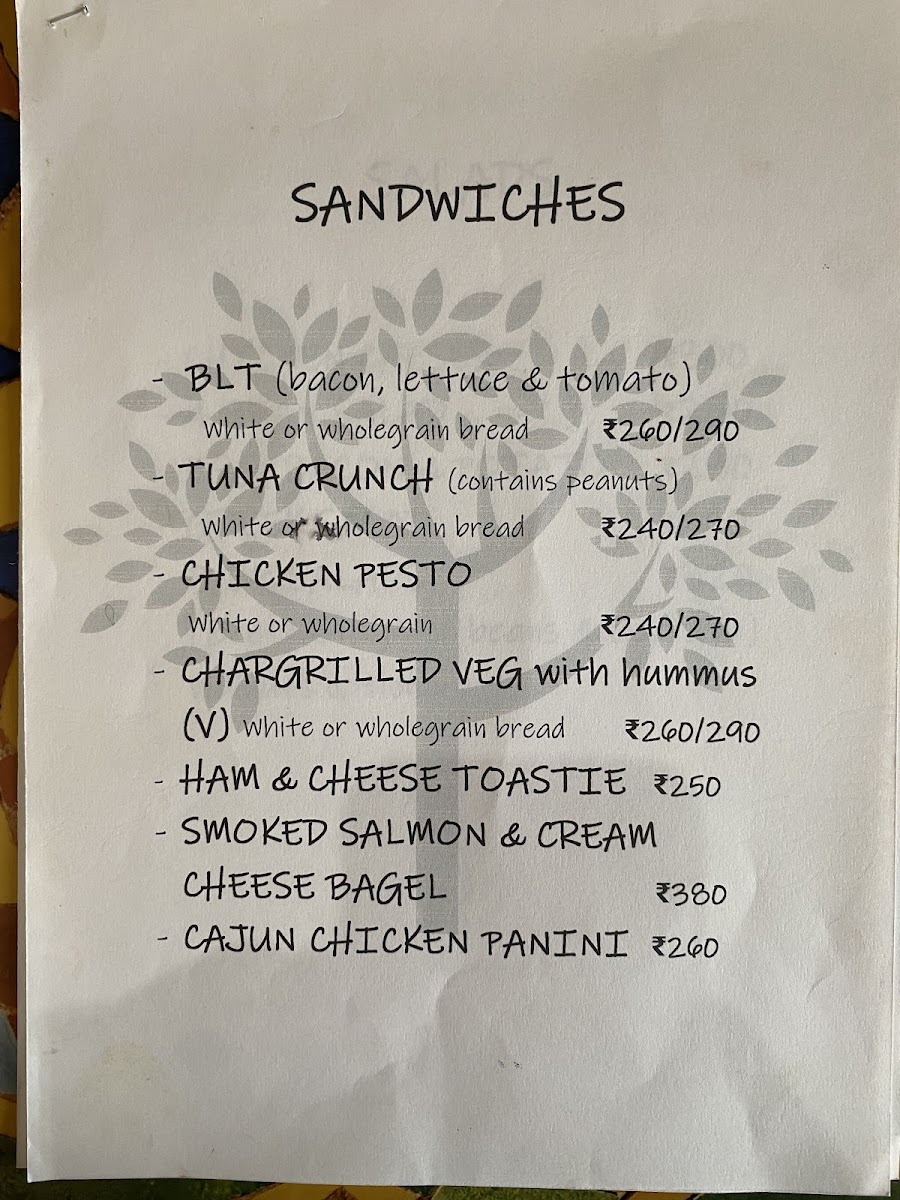 SANDWICHES
- BLT (bacon, lettuce & tomato)
White or wholegrain bread ₹260/290
- TUNA CRUNCH (contains peanuts)
White or wholegrain bread ₹240/270
- CHICKEN PESTO
White or wholegrain ₹240/270
- CHARGRILLED VEG with hummus
(V) White or wholegrain bread ₹260/290
- HAM & CHEESE TOASTIE ₹250
- SMOKED SALMON & CREAM
CHEESE BAGEL ₹380
- CAJUN CHICKEN PANINI ₹260